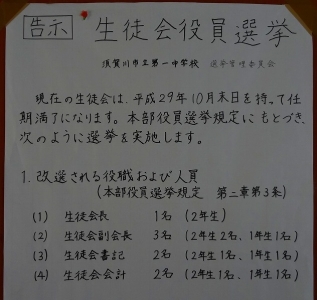 告示 生徒会役員選挙
須賀川市立第一中学校 選挙管理委員会
現在の生徒会は、平成29年10月末日を持って任
期満了になります。本部役員選挙規定にもとづき、
次のように選挙を実施します。
1. 改選される役職および人員
(本部役員選挙規定 第二章第3条)
(1) 生徒会長 1名 (2年生)
(2) 生徒会副会長 3名 (2年生2名、1年生1名)
(3) 生徒会書記 2名 (2年生1名、1年生1名)
(4) 生徒会会計 2名 (2年生1名、1年生1名)